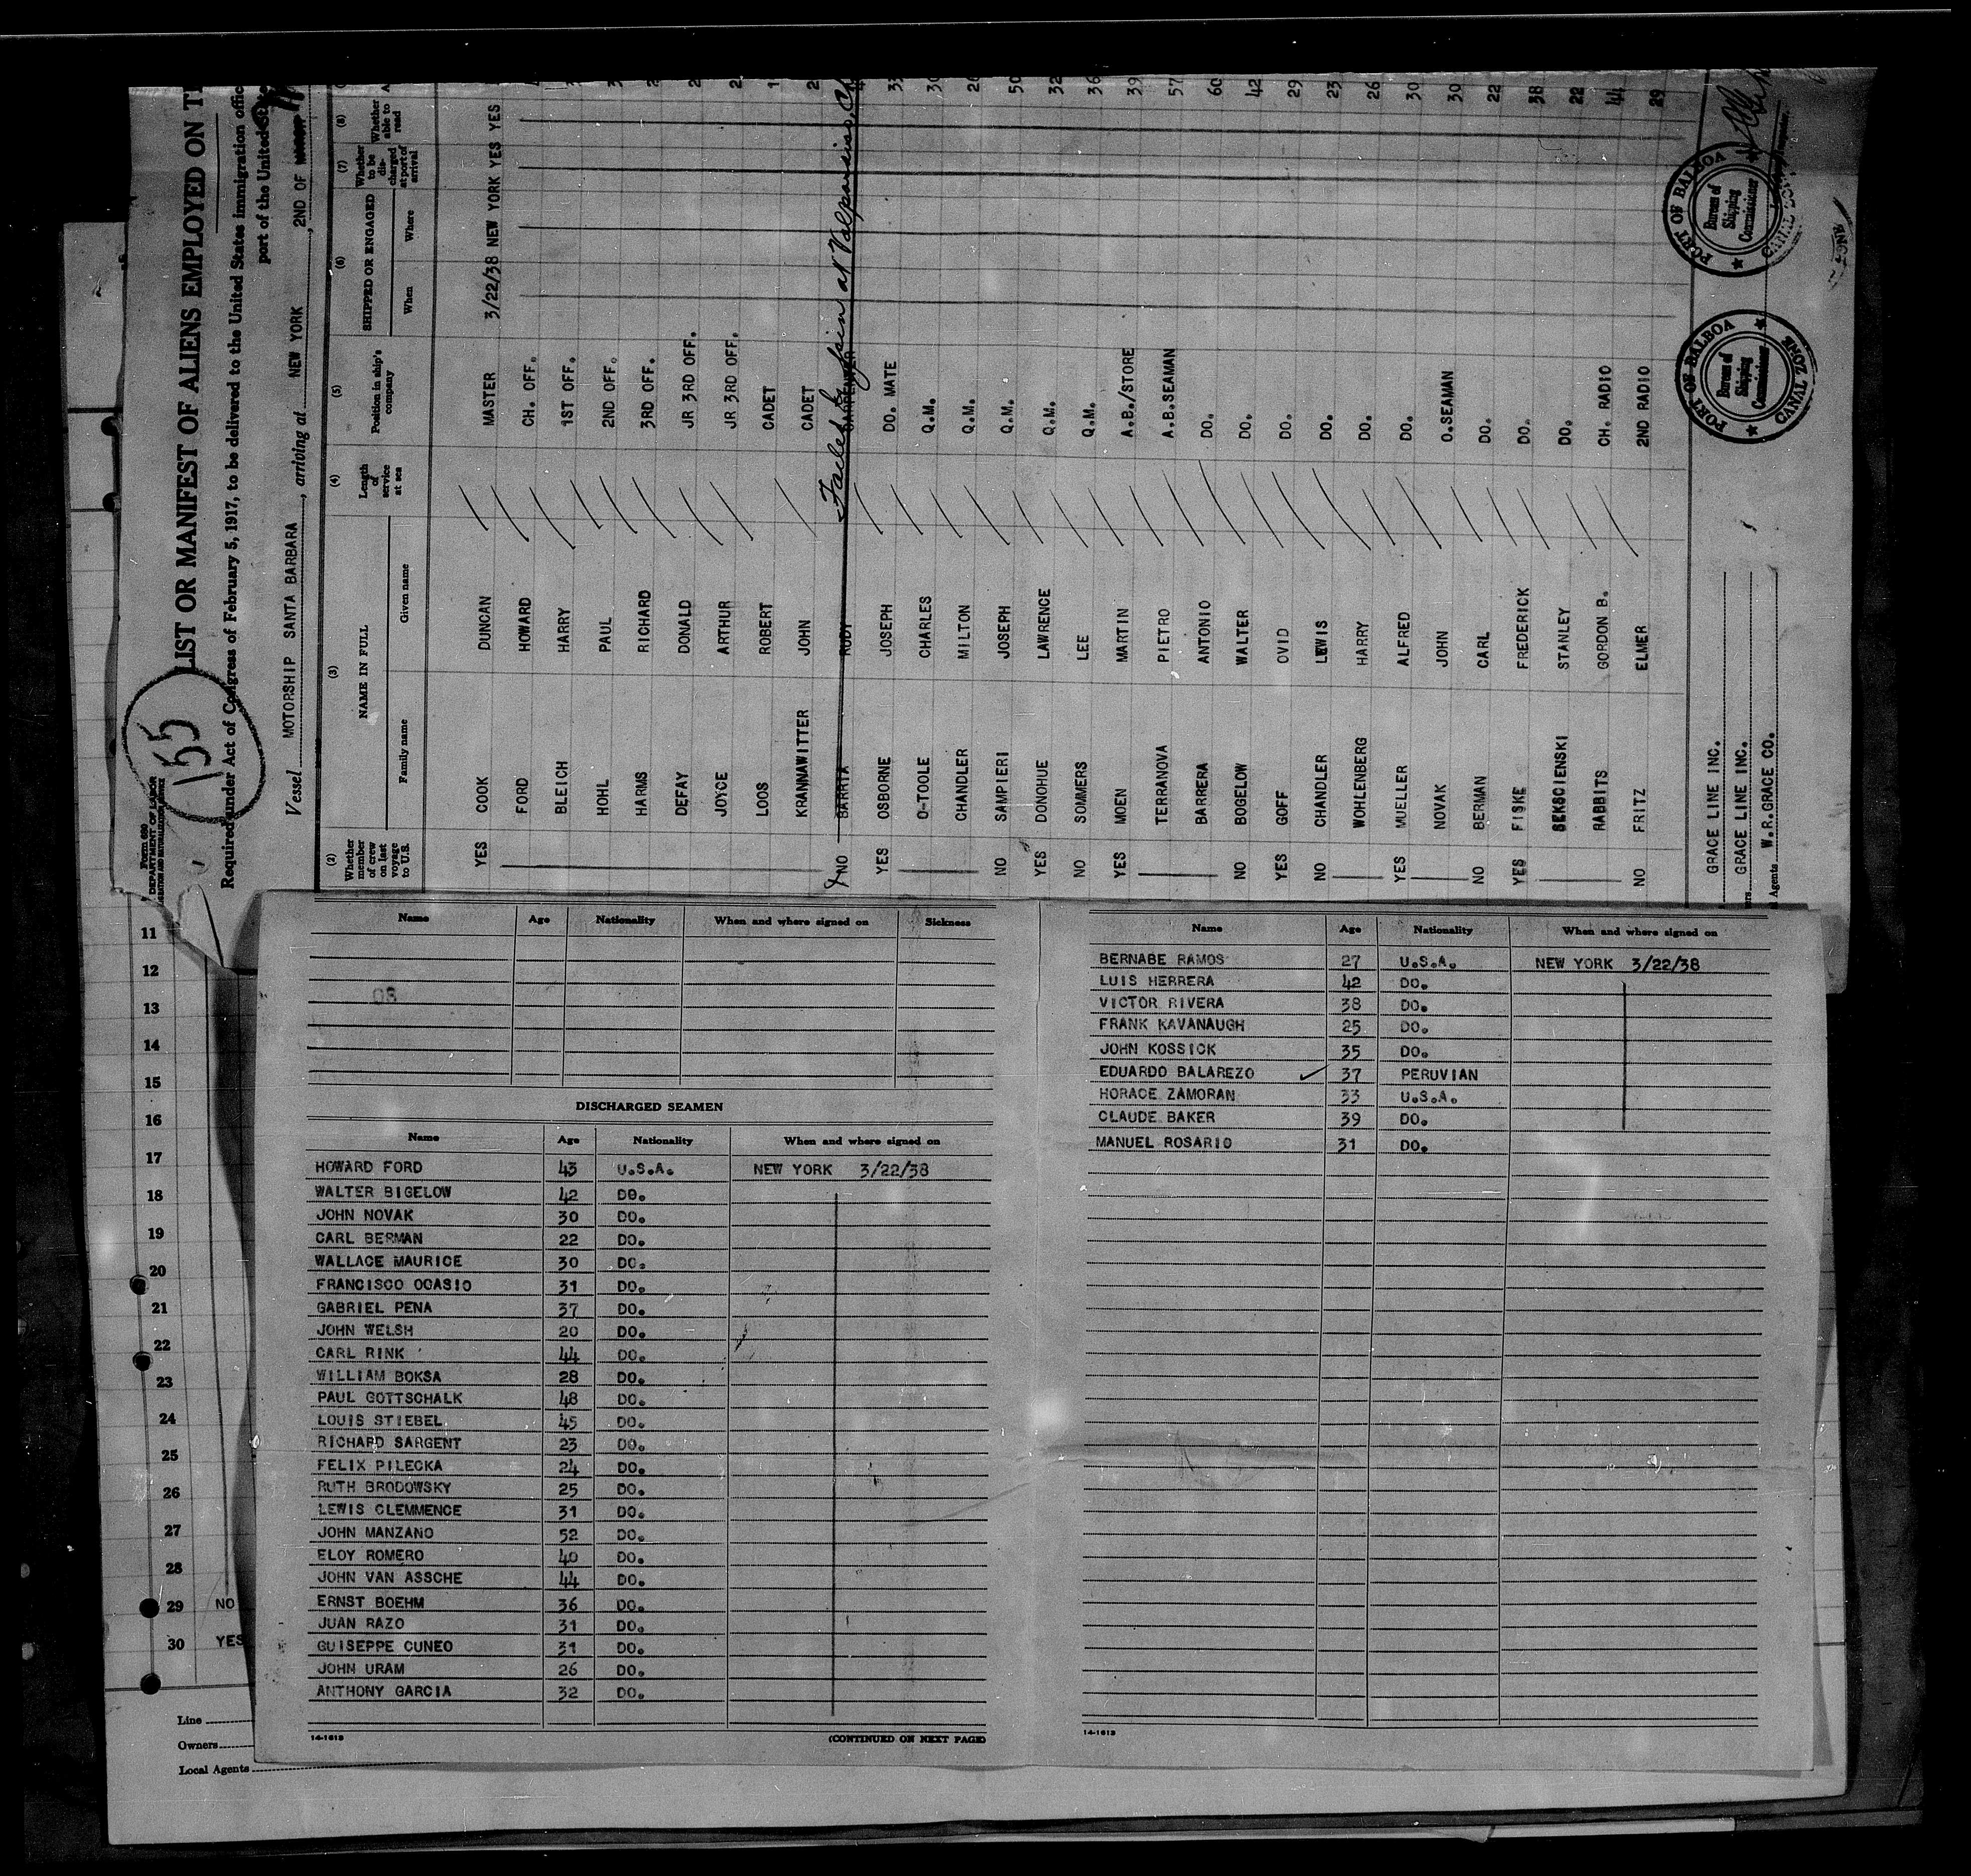 155
Form 689
DEPARTMENT OF LABOR
LIST OR MANIFEST OF ALIENS EMPLOYED ON
Required under Act of Congress of February 5, 1917, to be delivered to the United States immigration
port of the United
Vessel MOTORSHIP SANTA BARBARA, arriving at NEW YORK, 2ND OF
(2) (3) (4) (5) (6) (7) (8)
Whether member of crew on last voyage to U.S. NAME IN FULL Length of service at sea Position in ship's company SHIPPED OR ENGAGED Whether to be discharged at port of arrival Whether able to read
Family name Given name When Where
YES COOK DUNCAN MASTER 3/22/38 NEW YORK YES YES
FORD HOWARD CH. OFF.
BLEICH HARRY 1ST OFF.
HOHL PAUL 2ND OFF.
HARMS RICHARD 3RD OFF.
DEFAY DONALD JR 3RD OFF.
JOYCE ARTHUR JR 3RD OFF.
LOOS ROBERT CADET
KRANNAWITTER JOHN CADET
NO BARRIA RUDY CARPENTER Failed to join at Valparaiso,
YES OSBORNE JOSEPH DO. MATE
O-TOOLE CHARLES Q.M. 30
CHANDLER MILTON Q.M. 26
NO SAMPIERI JOSEPH Q.M. 50
YES DONOHUE LAWRENCE Q.M. 32
NO SOMMERS LEE Q.M. 36
YES MOEN MARTIN A.B./STORE 39
TERRANOVA PIETRO A.B.SEAMAN 57
BARRERA ANTONIO DO. 60
NO BOGELOW WALTER DO. 42
YES GOFF OVID DO. 29
NO CHANDLER LEWIS DO. 23
WOHLENBERG HARRY DO. 26
YES MUELLER ALFRED DO. 30
NOVAK JOHN O.SEAMAN 30
NO BERMAN CARL DO. 22
YES FISKE FREDERICK DO. 38
SEKSCIENSKI STANLEY DO. 22
RABBITS GORDON B. CH. RADIO 44
NO FRITZ ELMER 2ND RADIO 29
GRACE LINE INC.
GRACE LINE INC.
Agents W.R.GRACE CO.
PORT OF BALBOA
Bureau of Shipping Commissioner
CANAL ZONE
PORT OF BALBOA
Bureau of Shipping Commissioner
CANAL ZONE
11
12
13
14
15
16
17
18
19
20
21
22
23
24
25
26
27
28
29 NO
30 YES
Line
Owners
Local Agents
Name Age Nationality When and where signed on Sickness
DISCHARGED SEAMEN
Name Age Nationality When and where signed on
HOWARD FORD 43 U.S.A. NEW YORK 3/22/38
WALTER BIGELOW 42 DO.
JOHN NOVAK 30 DO.
CARL BERMAN 22 DO.
WALLACE MAURICE 30 DO.
FRANCISCO OCASIO 31 DO.
GABRIEL PENA 37 DO.
JOHN WELSH 20 DO.
CARL RINK 44 DO.
WILLIAM BOKSA 28 DO.
PAUL GOTTSCHALK 48 DO.
LOUIS STIEBEL 45 DO.
RICHARD SARGENT 23 DO.
FELIX PILECKA 24 DO.
RUTH BRODOWSKY 25 DO.
LEWIS CLEMMENCE 31 DO.
JOHN MANZANO 52 DO.
ELOY ROMERO 40 DO.
JOHN VAN ASSCHE 44 DO.
ERNST BOEHM 36 DO.
JUAN RAZO 31 DO.
GUISEPPE CUNEO 31 DO.
JOHN URAM 26 DO.
ANTHONY GARCIA 32 DO.
14-1613 (CONTINUED ON NEXT PAGE)
Name Age Nationality When and where signed on
BERNABE RAMOS 27 U.S.A. NEW YORK 3/22/38
LUIS HERRERA 42 DO.
VICTOR RIVERA 38 DO.
FRANK KAVANAUGH 25 DO.
JOHN KOSSICK 35 DO.
EDUARDO BALAREZO 37 PERUVIAN
HORACE ZAMORAN 33 U.S.A.
CLAUDE BAKER 39 DO.
MANUEL ROSARIO 31 DO.
14-1613